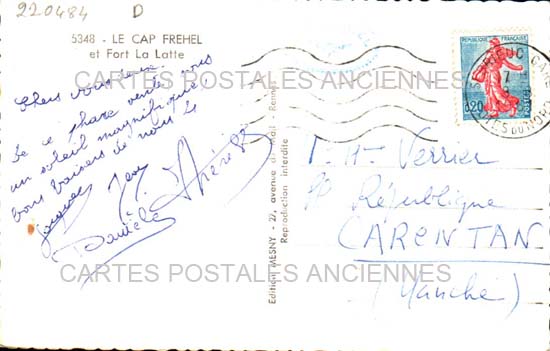 220484 D
5348 - LE CAP FREHEL
et Fort La Latte
CARTES POSTALES ANCIENNES
Chers voisins
De ce phare
un soleil magnifique,
bons baisers de nous
Jacques
Danièle
Edition MESNY - 27, avenue du Mail - Rennes
Reproduction interdite
REPUBLIQUE FRANÇAISE
0,20
ST BRIEUC GARE
COTES DU NORD
Verrier
République
CARENTAN
(Manche)
CARTES POSTALES ANCIENNES